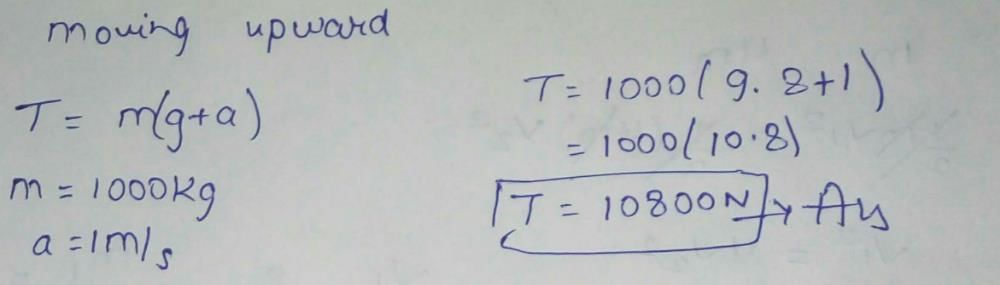 moving upward
T = m(g+a)
m = 1000Kg
a = 1m/s
T = 1000(9.8+1)
= 1000(10.8)
T = 10800N → Ans